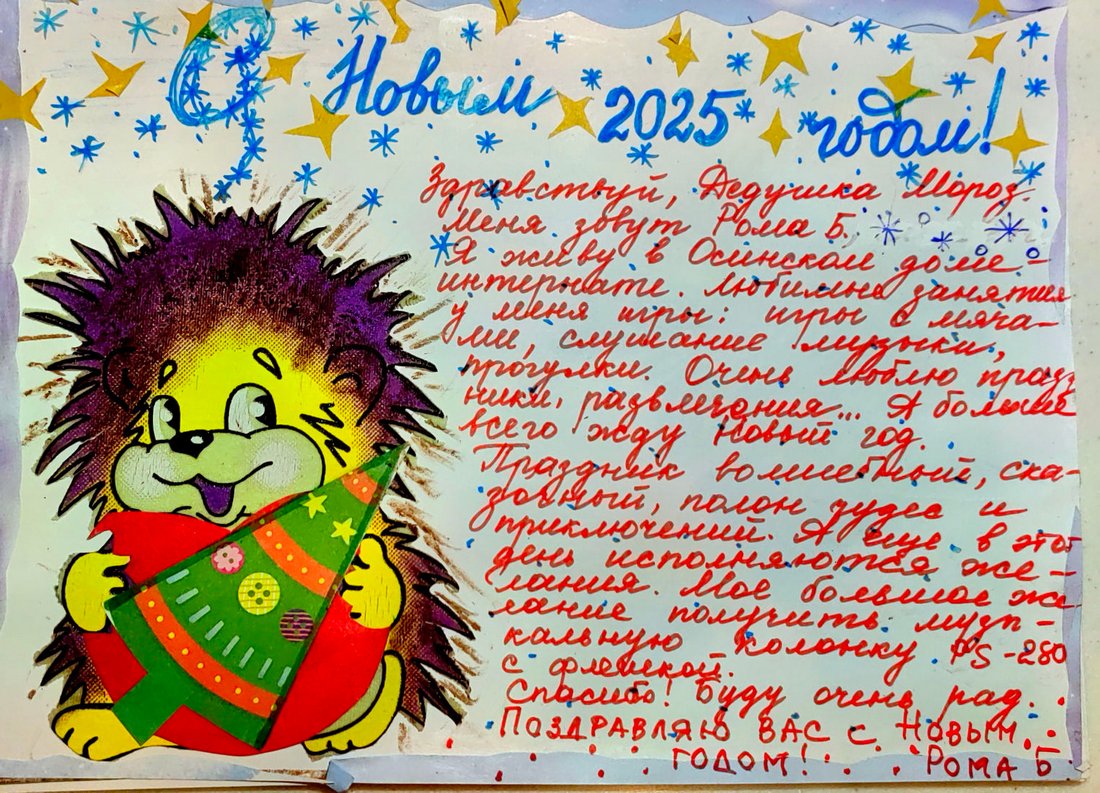 С Новым 2025 годом!
Здравствуй, Дедушка Мороз.
Меня зовут Рома Б.
Я живу в Осинском доме-
интернате. Любимые занятия
у меня игры: игры с мяча-
ми, слушание музыки,
прогулки. Очень люблю празд
ники, развлечения... А больше
всего жду Новый год.
Праздник волшебный, ска-
зочный, полон чудес и
приключений. А еще в этот
день исполняются же-
лания. Мое большое же
лание получить музы-
кальную колонку PS-280
с флешкой.
Спасибо! Буду очень рад.
ПОЗДРАВЛЯЮ ВАС С НОВЫМ
ГОДОМ!
РОМА Б